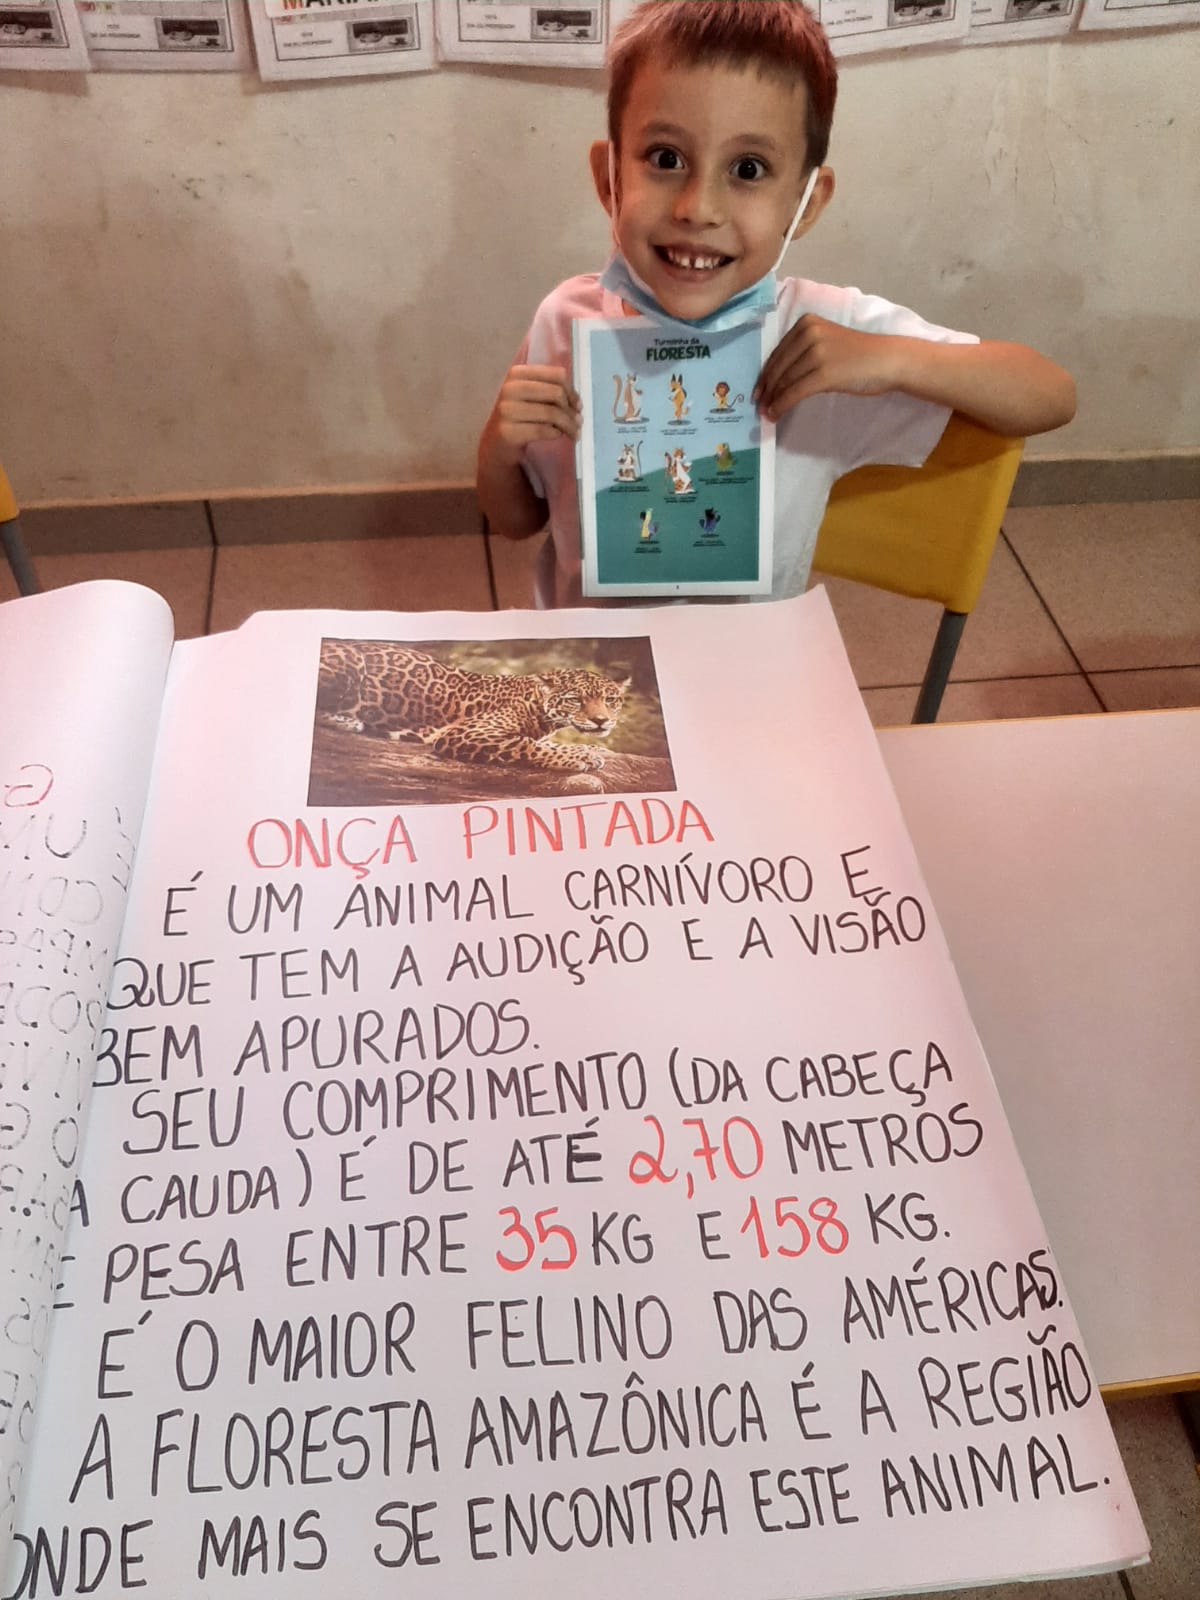 Turminha da
FLORESTA
ONÇA PINTADA
É UM ANIMAL CARNÍVORO E
QUE TEM A AUDIÇÃO E A VISÃO
BEM APURADOS.
SEU COMPRIMENTO (DA CABEÇA
A CAUDA) É DE ATÉ 2,70 METROS
E PESA ENTRE 35 KG E 158 KG.
É O MAIOR FELINO DAS AMÉRICAS.
A FLORESTA AMAZÔNICA É A REGIÃO
ONDE MAIS SE ENCONTRA ESTE ANIMAL.